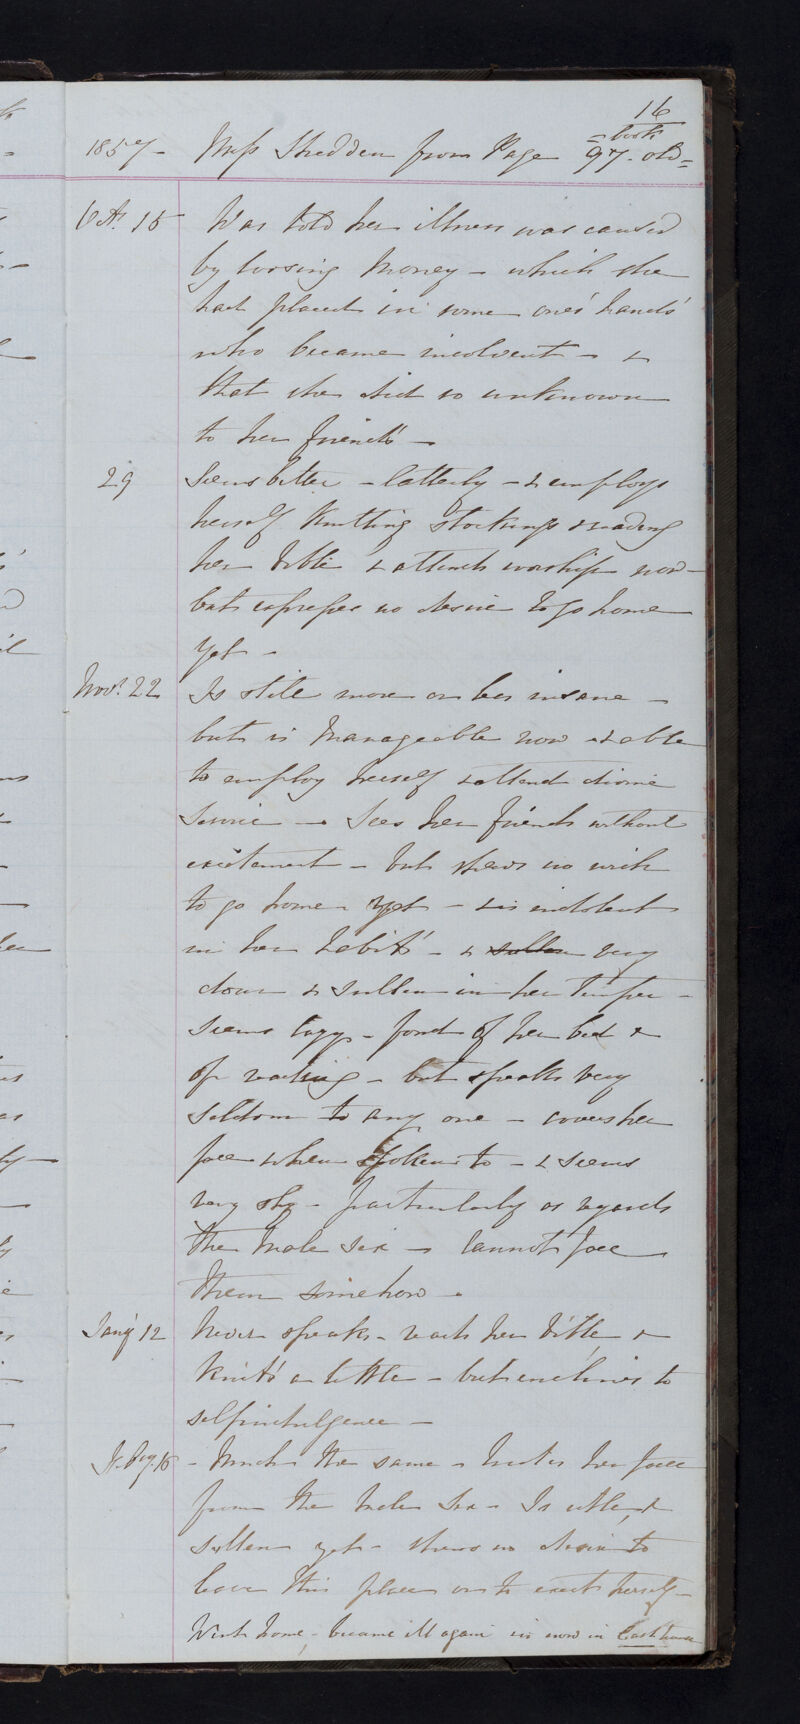 16
1857 - Miss Shedden from Page 97 - old = book
Oct. 15 Was told her illness was caused
by loosing money - which she
had placed in some ones' hands'
who became insolvent - &
that she did so unknown
to her friends -
29 Seems better - latterly - & employs
herself Knitting stockings & reading
her bible & attends worship now -
but expresses no desire to go home
yet -
Novr. 22 Is still more or less insane -
but is manageable now & able
to employ herself & attend divine
Service - Sees her friends without
excitement - but shews no wish
to go home yet - & is indolent
in her habits - & sullen very
dour & sullen in her temper -
seems lazy - fond of her bed &
of reading - but speaks very
seldom to any one - covers her
face when spoken to - & seems
very shy - particularly as regards
the male sex - Cannot face
them somehow -
Jany 12 Never speaks - reads her bible &
Knits a little - but inclines to
selfindulgence -
15 - Much the same - hides her face
from the male Sex - Is idle &
sullen yet - shews no desire to
leave this place or to exert herself -
Went home - became ill again is now in East house